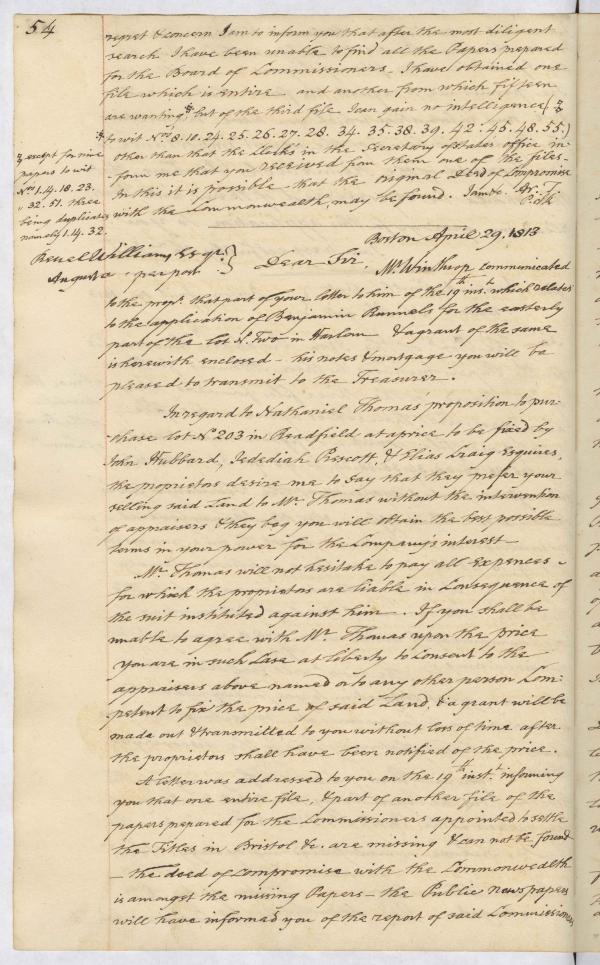 54
regret & concern I am to inform you that after the most diligent
search I have been unable to find all the Papers prepared
for the Board of Commissioners - I have obtained one
file which is entire and another from which fifteen
are wanting, but of the third file I can gain no intelligence (
to wit Nos 8. 10. 24. 25. 26. 27. 28. 34. 35. 38. 39. 42. 45. 48. 55.)
other than that the Clerks in the Secretary of states office in-
form me that you received from them one of the files.
In this it is possible that the original Deed of Compromise
with the Commonwealth, may be found. I am &c.
except for nine
papers to wit
Nos 1. 4. 18. 23.
" 32. 51. three
being duplicates
namely 1. 4. 32.
Boston April 29. 1813
Reuel Williams Esqr.
Augusta - per post
Dear Sir,
Mr. Winthrop communicated
to the propr. that part of your letter to him of the 19th inst. which relates
to the application of Benjamin Runnels for the easterly
part of the lot No. Two in Harlem & a grant of the same
is herewith enclosed - his notes & mortgage you will be
pleased to transmit to the Treasurer.
In regard to Nathaniel Thomas' proposition to pur-
chase lot No 203 in Readfield at a price to be fixed by
John Hubbard, Jedediah Prescott, & Elias Craig Esquires,
the proprietors desire me to say that they prefer your
selling said Land to Mr. Thomas without the intervention
of appraisers & they beg you will obtain the best possible
terms in your power for the Company's interest -
Mr. Thomas will not hesitate to pay all Expences
for which the proprietors are liable in Consequence of
the suit instituted against him. If you shall be
unable to agree with Mr. Thomas upon the price
you are in such Case at liberty to Consent to the
appraisers above named or to any other person Com-
petent to fix the price of said Land, & a grant will be
made out & transmitted to you without loss of time after
the proprietors shall have been notified of the price.
A letter was addressed to you on the 19th inst. informing
you that one entire file, & part of another file of the
papers prepared for the Commissioners appointed to settle
the Titles in Bristol &c. are missing & can not be found
- the deed of compromise with the Commonwealth
is amongst the missing Papers - the Public newspapers
will have informed you of the report of said Commissioners